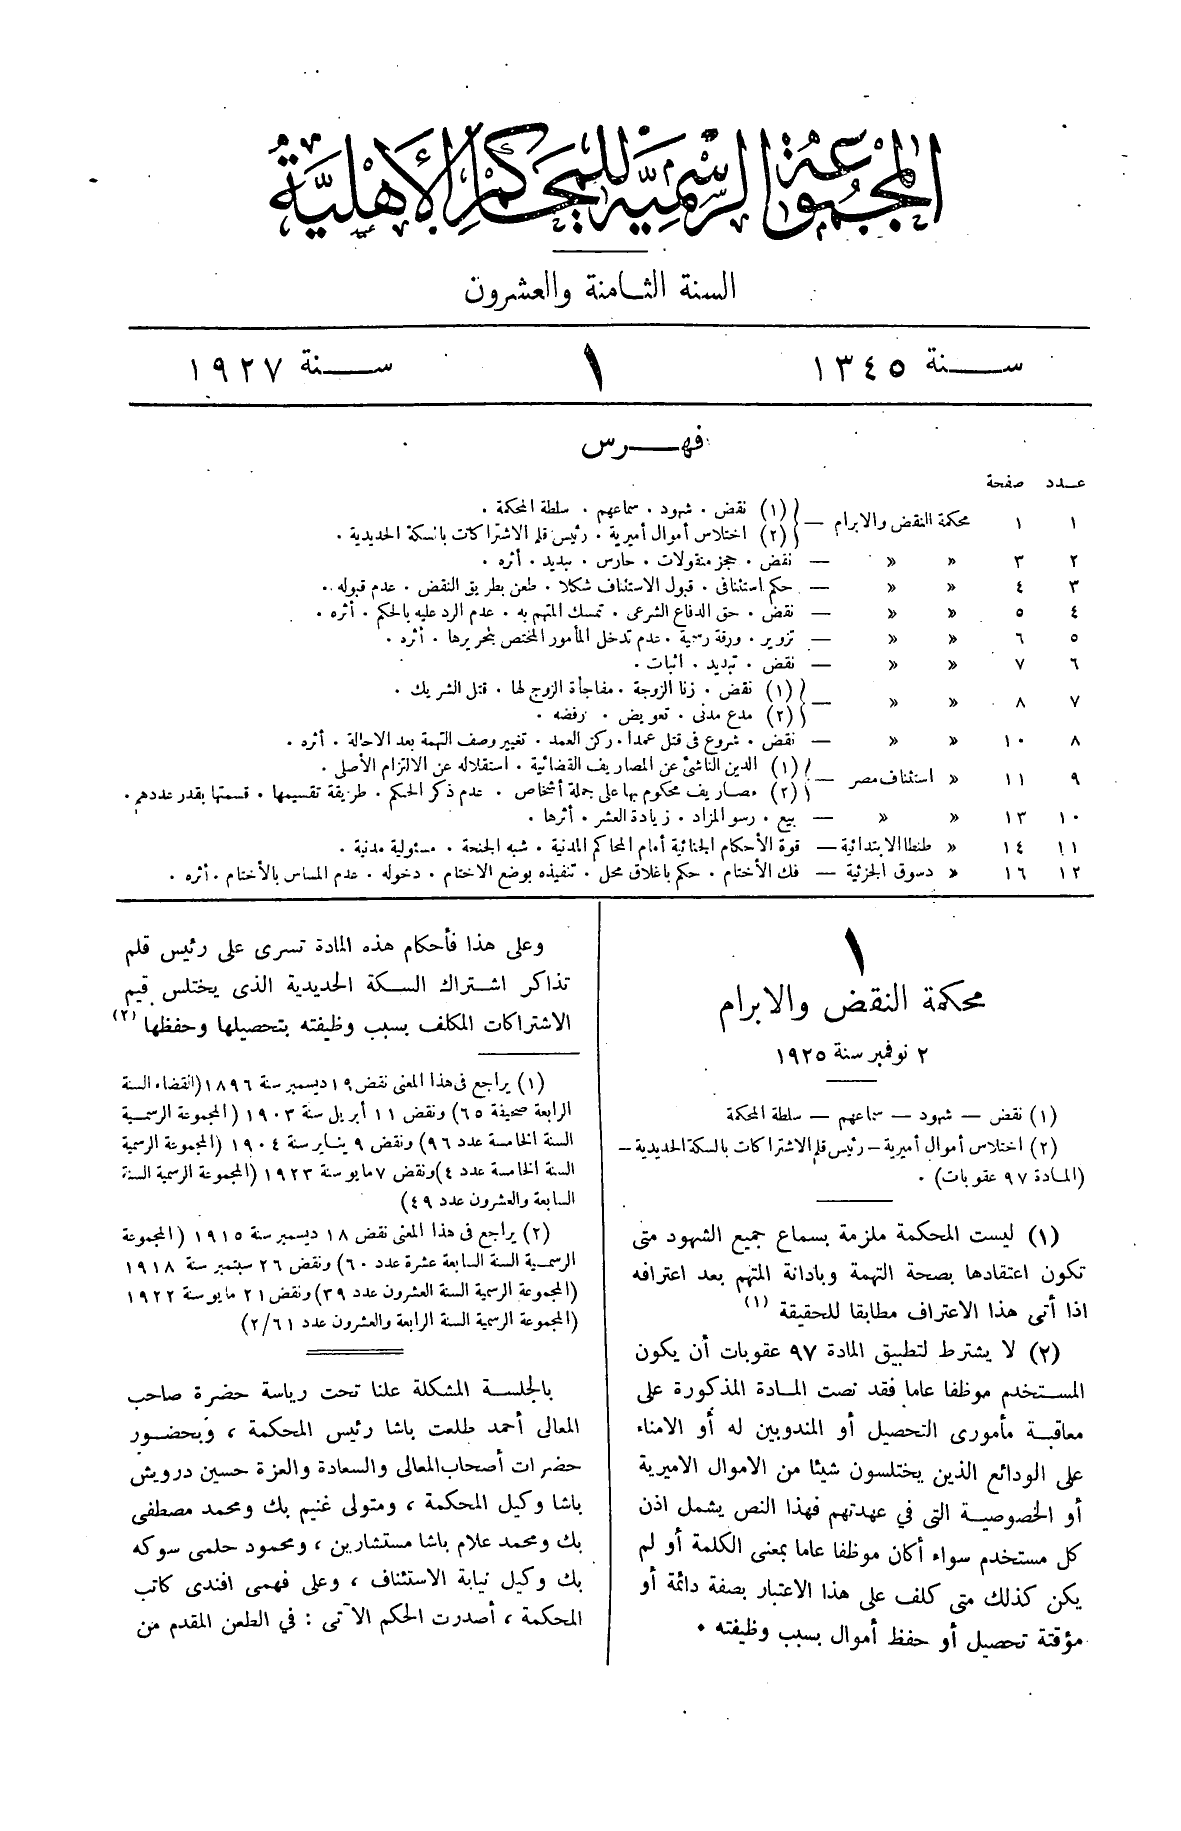 المجموعة الرسمية للمحاكم الأهلية
السنة الثامنة والعشرون
سنة ١٣٤٥
١
سنة ١٩٢٧
فهرس
عدد صفحة
١ ١ محكمة النقض والابرام — (١) نقض . شهود . سماعهم . سلطة المحكمة .
(٢) اختلاس أموال أميرية . رئيس قلم الاشتراكات بالسكة الحديدية .
٢ ٣ » » — نقض . حجز منقولات . حارس . تبديد . أثره .
٣ ٤ » » — حكم استئنافى . قبول الاستئناف شكلا . طعن بطريق النقض . عدم قبوله .
٤ ٥ » » — نقض . حق الدفاع الشرعى . تمسك المتهم به . عدم الرد عليه بالحكم . أثره .
٥ ٦ » » — تزوير . ورقة رسمية . عدم تدخل المأمور المختص بتحريرها . أثره .
٦ ٧ » » — نقض . تبديد . اثبات .
٧ ٨ » » — (١) نقض . زنا الزوجة . مفاجأة الزوج لها . قتل الشريك .
(٢) مدع مدنى . تعويض . رفضه .
٨ ١٠ » » — نقض . شروع فى قتل عمدا . ركن العمد . تغيير وصف التهمة بعد الاحالة . أثره .
٩ ١١ » استئناف مصر — (١) الدين الناشئ عن المصاريف القضائية . استقلاله عن الالتزام الأصلى .
(٢) مصاريف محكوم بها على جملة أشخاص . عدم ذكر الحكم . طريقة تقسيمها . قسمتها بقدر عددهم .
١٠ ١٣ » » — بيع . رسو المزاد . زيادة العشر . أثرها .
١١ ١٤ » طنطا الابتدائية — قوة الأحكام الجنائية أمام المحاكم المدنية . شبه الجنحة . مسئولية مدنية .
١٢ ١٦ » دسوق الجزئية — فك الأختام . حكم باغلاق محل . تنفيذه بوضع الاختام . دخوله . عدم المساس بالأختام . أثره .
١
محكمة النقض والابرام
٢ نوفمبر سنة ١٩٢٥
(١) نقض — شهود — سماعهم — سلطة المحكمة
(٢) اختلاس أموال أميرية – رئيس قلم الاشتراكات بالسكة الحديدية –
(المادة ٩٧ عقوبات) .
(١) ليست المحكمة ملزمة بسماع جميع الشهود متى
تكون اعتقادها بصحة التهمة وبادانة المتهم بعد اعترافه
اذا أتى هذا الاعتراف مطابقا للحقيقة (١)
(٢) لا يشترط لتطبيق المادة ٩٧ عقوبات أن يكون
المستخدم موظفا عاما فقد نصت المادة المذكورة على
معاقبة مأمورى التحصيل أو المندوبين له أو الامناء
على الودائع الذين يختلسون شيئا من الاموال الاميرية
أو الخصوصية التى في عهدتهم فهذا النص يشمل اذن
كل مستخدم سواء أكان موظفا عاما بمعنى الكلمة أو لم
يكن كذلك متى كلف على هذا الاعتبار بصفة دائمة أو
مؤقتة تحصيل أو حفظ أموال بسبب وظيفته .
وعلى هذا فأحكام هذه المادة تسرى على رئيس قلم
تذاكر اشتراك السكة الحديدية الذى يختلس قيم
الاشتراكات المكلف بسبب وظيفته بتحصيلها وحفظها (٢)
(١) يراجع فى هذا المعنى نقض ١٩ ديسمبر سنة ١٨٩٦ (القضاء السنة
الرابعة صحيفة ٦٥) ونقض ١١ أبريل سنة ١٩٠٣ (المجموعة الرسمية
السنة الخامسة عدد ٩٦) ونقض ٩ يناير سنة ١٩٠٤ (المجموعة الرسمية
السنة الخامسة عدد ٤) ونقض ٧ مايو سنة ١٩٢٣ (المجموعة الرسمية السنة
السابعة والعشرون عدد ٤٩)
(٢) يراجع فى هذا المعنى نقض ١٨ ديسمبر سنة ١٩١٥ (المجموعة
الرسمية السنة السابعة عشرة عدد ٦٠) ونقض ٢٦ سبتمبر سنة ١٩١٨
(المجموعة الرسمية السنة العشرون عدد ٣٩) ونقض ٢١ مايو سنة ١٩٢٢
(المجموعة الرسمية السنة الرابعة والعشرون عدد ٢/٦١)
بالجلسة المشكلة علنا تحت رياسة حضرة صاحب
المعالى أحمد طلعت باشا رئيس المحكمة ، وبحضور
حضرات أصحاب المعالى والسعادة والعزة حسين درويش
باشا وكيل المحكمة ، ومتولى غنيم بك ومحمد مصطفى
بك ومحمد علام باشا مستشارين ، ومحمود حلمى سوكه
بك وكيل نيابة الاستئناف ، وعلى فهمى افندى كاتب
المحكمة ، أصدرت الحكم الآتى : في الطعن المقدم من